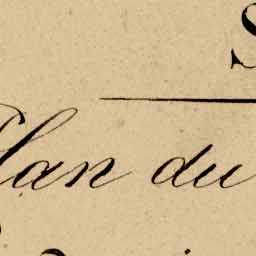 S
Plan du